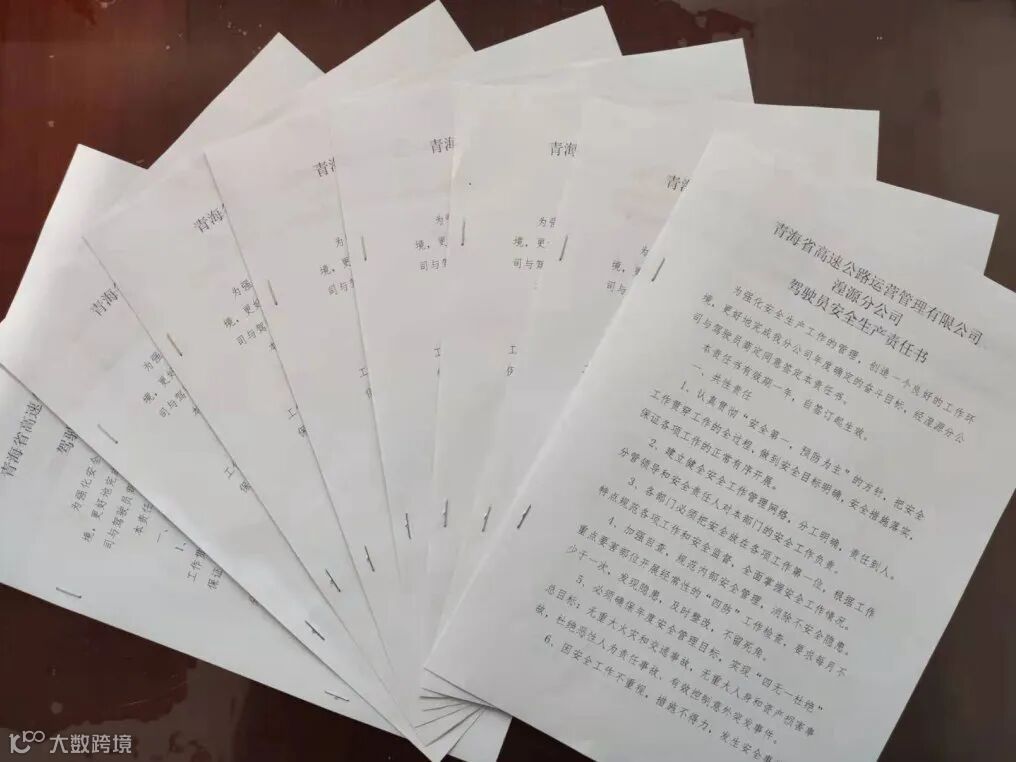 青海省高速公路运营管理有限公司
湟源分公司
驾驶员安全生产责任书
为强化安全生产工作的管理，创造一个良好的工作环
境，更好地完成我分公司年度确定的奋斗目标，经湟源分公
司与驾驶员商定同意签定本责任书。
本责任书有效期一年，自签订起生效。
一、共性责任
1、认真贯彻“安全第一，预防为主”的方针，把安全
工作贯穿工作的全过程，做到安全目标明确，安全措施落实，
保证各项工作的正常有序开展。
2、建立健全安全工作管理网络，分工明确，责任到人。
分管领导和安全责任人对本部门的安全工作负责。
3、各部门必须把安全放在各项工作第一位，根据工作
特点规范各项工作和安全监督，全面掌握安全工作情况。
4、加强自查，规范内部安全管理，消除不安全隐患。
重点要害部位开展经常性的“四防”工作检查，要求每月不
少于一次，发现隐患，及时整改，不留死角。
5、必须确保年度安全管理目标，实现“四无一杜绝”
总目标：无重大火灾和交通事故，无重大人身和资产损害事
故，杜绝恶性人为责任事故、有效控制意外突发事件。
6、因安全工作不重视，措施不得力，发生安全事
青海
青海
青海
青海
青海省
青海省
青海省高速
驾驶
为强化安全
境，更好地完
司与驾驶员商
本责任
一、
1、
工作贯
保证
大数跨境